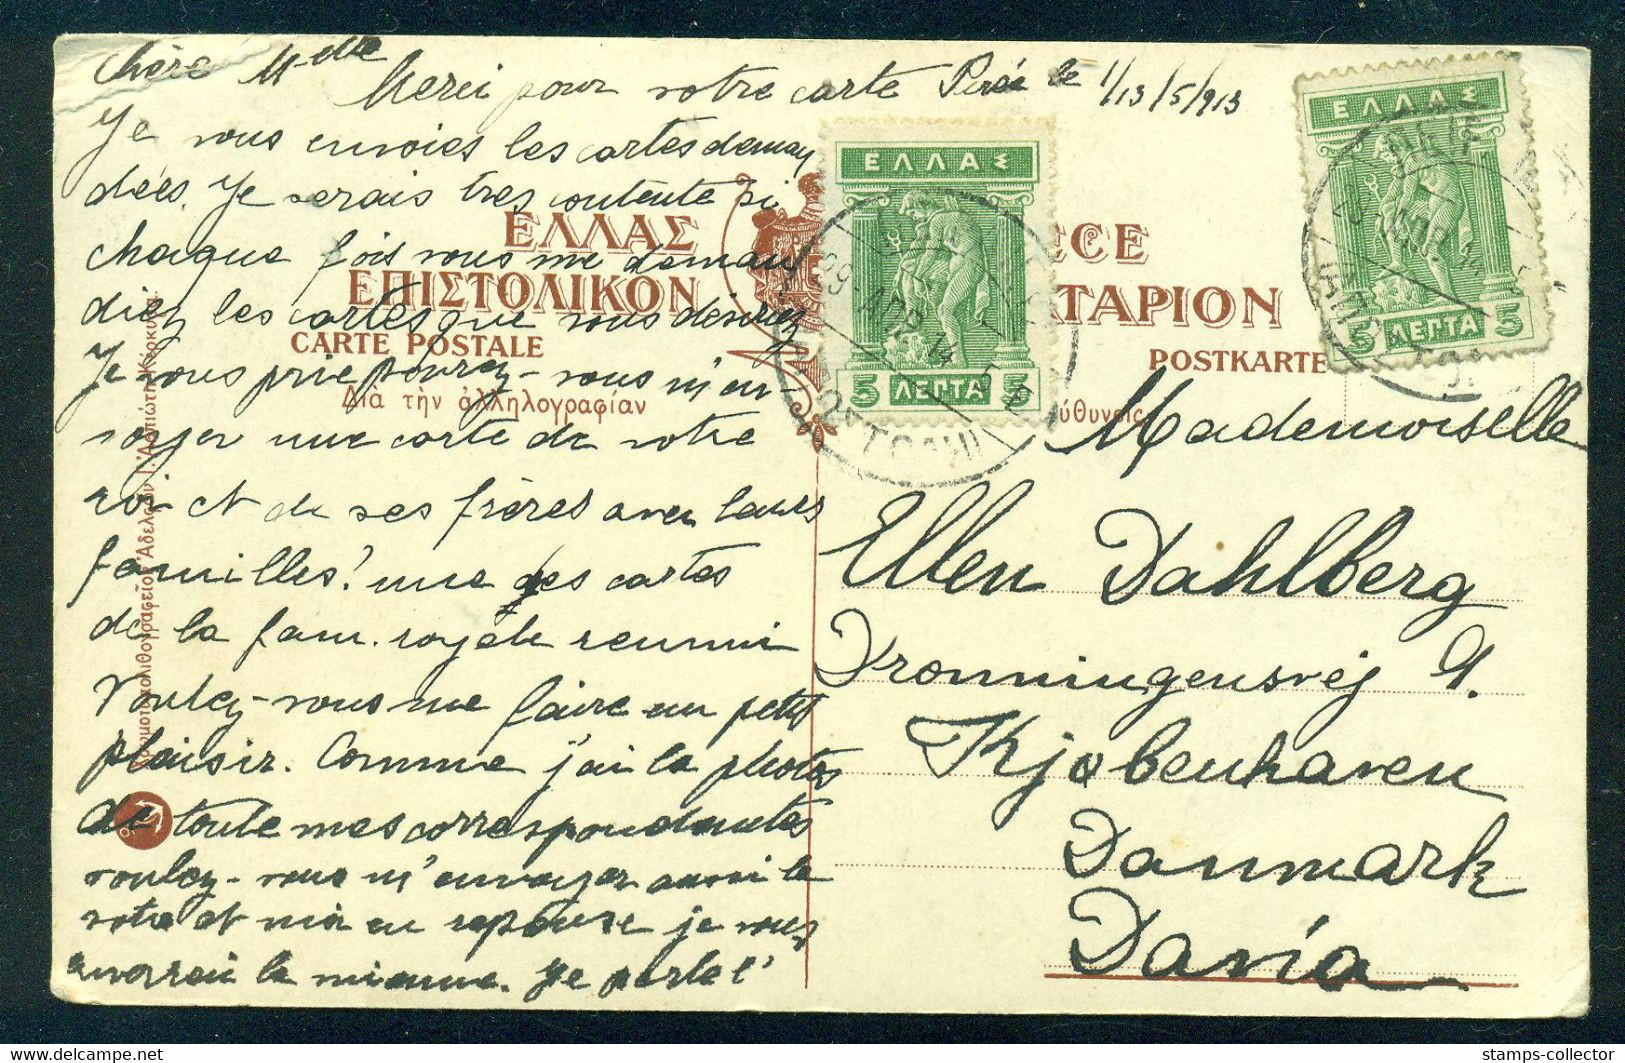 Chère Mdlle
Merci pour votre carte Pirée le 1/13/5/913
Je vous envoies les cartes deman
dées. Je serais tres contente si
chaque fois vous me deman
diez les cartes que vous désirez
Je vous prie pourez-vous m'en
voyer une carte de votre
roi et de ses frères avec leurs
familles! une des cartes
de la fam. royale reunni
Voulez-vous me faire un petit
plaisir. Comme j'ai la photos
de toute mes correspondantes
voulez-vous m'envoyer aussi la
votre et moi en reponse je vous
enverrai la mienne. Je parle l'
ΕΛΛΑΣ
ECE
ΕΠΙΣΤΟΛΙΚΟΝ
ΤΑΡΙΟΝ
CARTE POSTALE
POSTKARTE
Δια τὴν ἀλληλογραφίαν
ύθυνσις
ΕΛΛΑΣ
5 ΛΕΠΤΑ 5
ΕΛΛΑΣ
5 ΛΕΠΤΑ 5
Mademoiselle
Ellen Dahlberg
Dronningensvej 9.
Kjøbenhaven
Danmark
Dania
Ἀσπιώτη Κέρκυρα.
stamps-collector